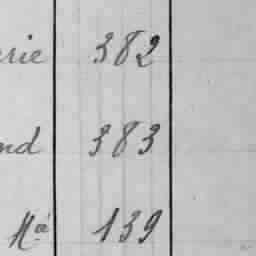 erie 382
nd 383
Mce 139